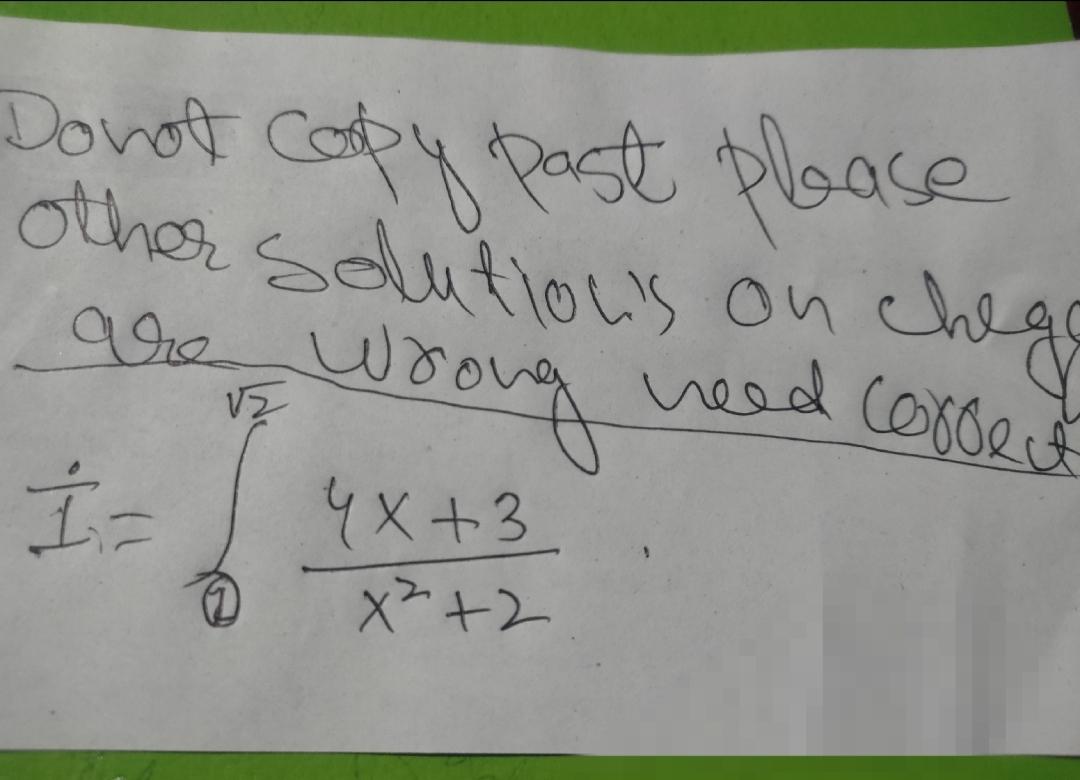 Do not copy past please
other solution's on cheg
are wrong need correct
√2
I = ∫ 4x+3
x²+2